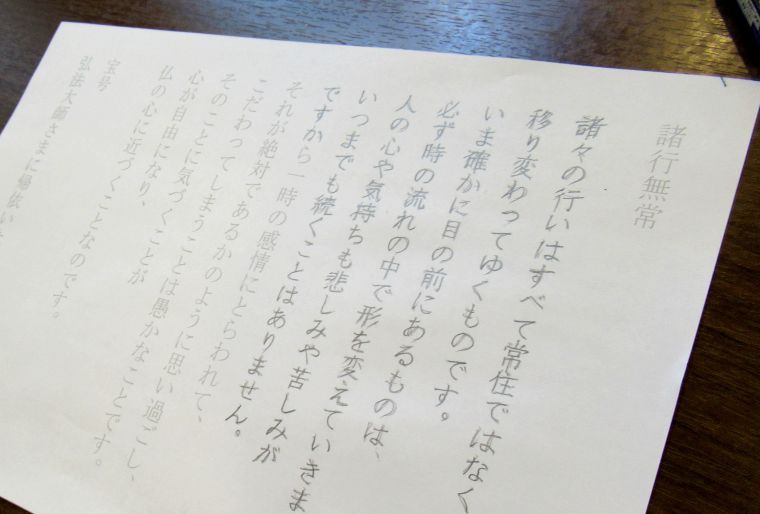 諸行無常
諸々の行いはすべて常住ではなく
移り変わってゆくものです。
いま確かに目の前にあるものは、
必ず時の流れの中で形を変えていきま
人の心や気持ちも悲しみや苦しみが
いつまでも続くことはありません。
ですから一時の感情にとらわれて、
それが絶対であるかのように思い過ごし、
こだわってしまうことは愚かなことです。
そのことに気づくことが
心が自由になり、
仏の心に近づくことなのです。
宝号
弘法大師さまに帰依い